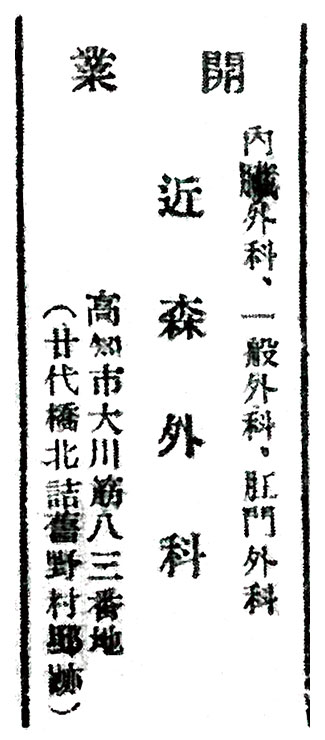 開業
内臓外科、一般外科、肛門外科
近森外科
高知市大川筋八三番地
（廿代橋北詰舊野村邸跡）